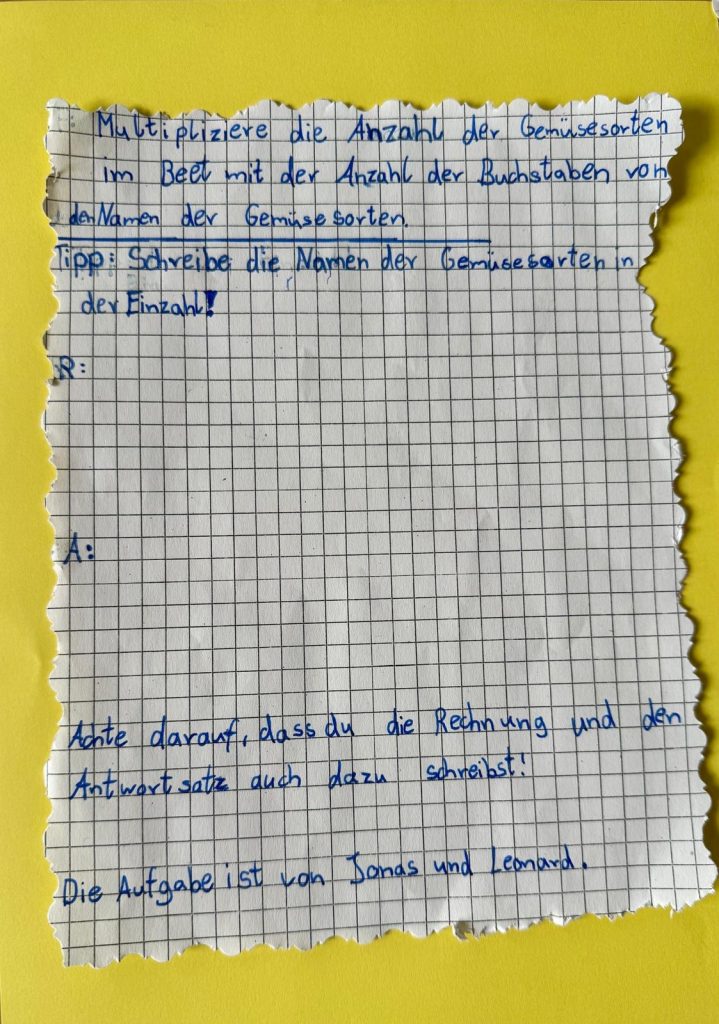 Multipliziere die Anzahl der Gemüsesorten
im Beet mit der Anzahl der Buchstaben von
den Namen der Gemüsesorten.
Tipp: Schreibe die Namen der Gemüsesorten in
der Einzahl!
R:
A:
Achte darauf, dass du die Rechnung und den
Antwortsatz auch dazu schreibst!
Die Aufgabe ist von Jonas und Leonard.